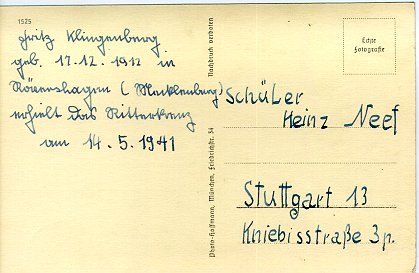 1525
Fritz Klingenberg
geb. 17.12.1912 in
Rövershagen (Mecklenburg)
erhielt das Ritterkreuz
am 14.5.1941
Photo-Hoffmann, München, Friedrichstr. 34
Nachdruck verboten
Echte
Fotografie
Schüler
Heinz Neef
Stuttgart 13
Kniebisstraße 3p.